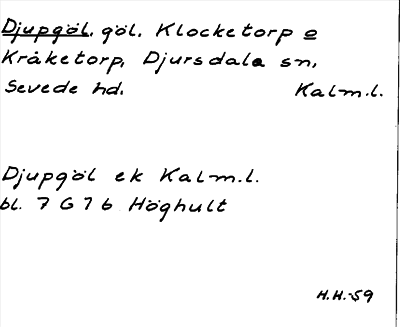 Djupgöl, göl, Klocketorp o
Kråketorp, Djursdala sn,
Sevede hd. Kalm.l.
Djupgöl ek Kalm.l.
bl. 7 G 7 b Höghult
H.H.-59